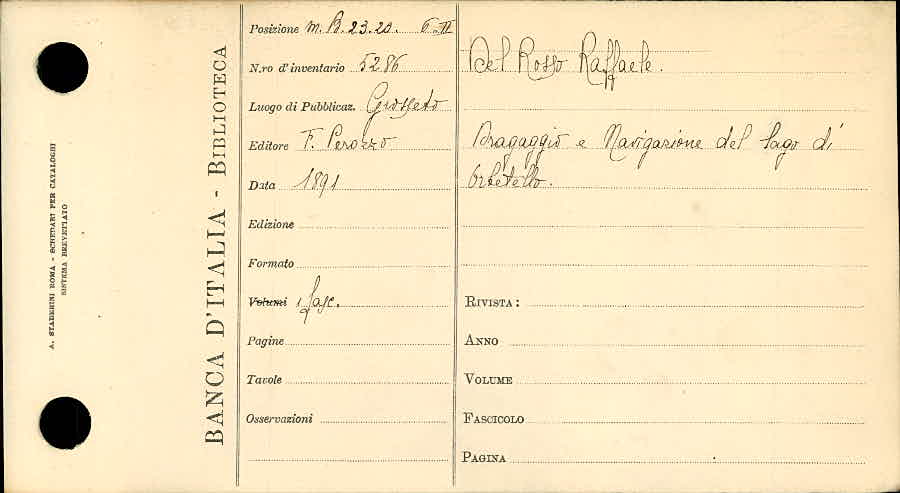 A. STADERINI ROMA - SCHEDARI PER CATALOGHI
SISTEMA BREVETTATO
BANCA D'ITALIA - BIBLIOTECA
Posizione m. B. 23. 20. 6-II
N.ro d'inventario 5286
Luogo di Pubblicaz. Grosseto
Editore F. Perozzo
Data 1891
Edizione
Formato
Volumi 1 fasc.
Pagine
Tavole
Osservazioni
Del Rosso Raffaele.
Dragaggio e Navigazione del lago di
Orbetello.
RIVISTA:
ANNO
VOLUME
FASCICOLO
PAGINA